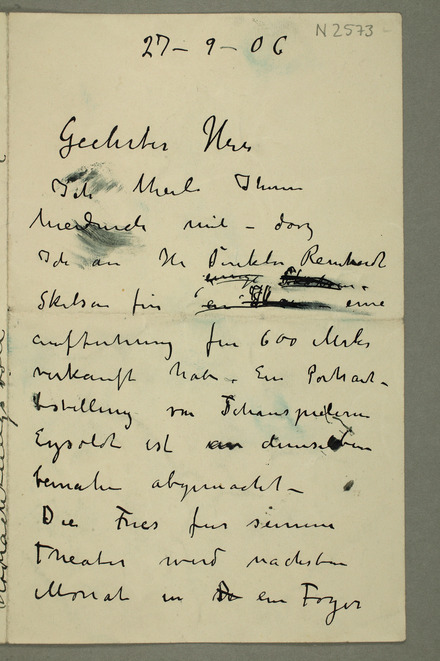 N 2573
27 - 9 - 06
Geehrter Herr
Ich theile Ihnen
hierdurch mit - dass
Ich an Hr Direktor Reinhardt
Skitsen für eine
aufführung für 600 Marks
verkauft habe. Ein Portrait-
bestellung von Schauspielerin
Eysoldt ist demselben
beinahe abgemacht -
Die Fries fur seinem
Theater wird nachsten
Monat in ein Foyer